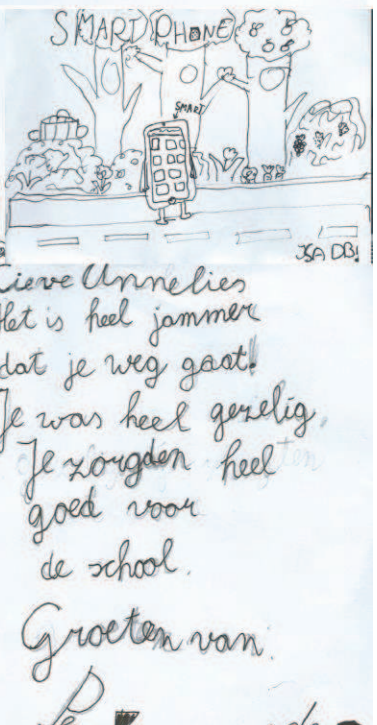 SMARTPHONE
SMART
ISA DB!
Lieve Annelies
Het is heel jammer
dat je weg gaat!
Je was heel gezelig.
Je zorgden heel
goed voor
de school.
Groeten van